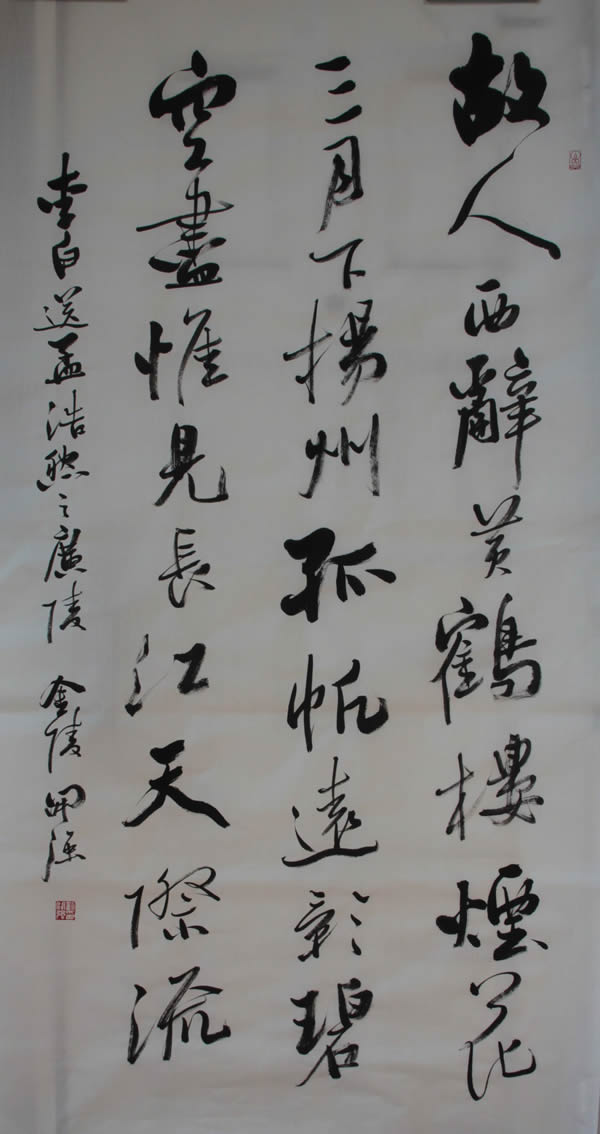 故人西辭黃鶴樓煙花
三月下揚州孤帆遠影碧
空盡惟見長江天際流
李白送孟浩然之廣陵 金陵